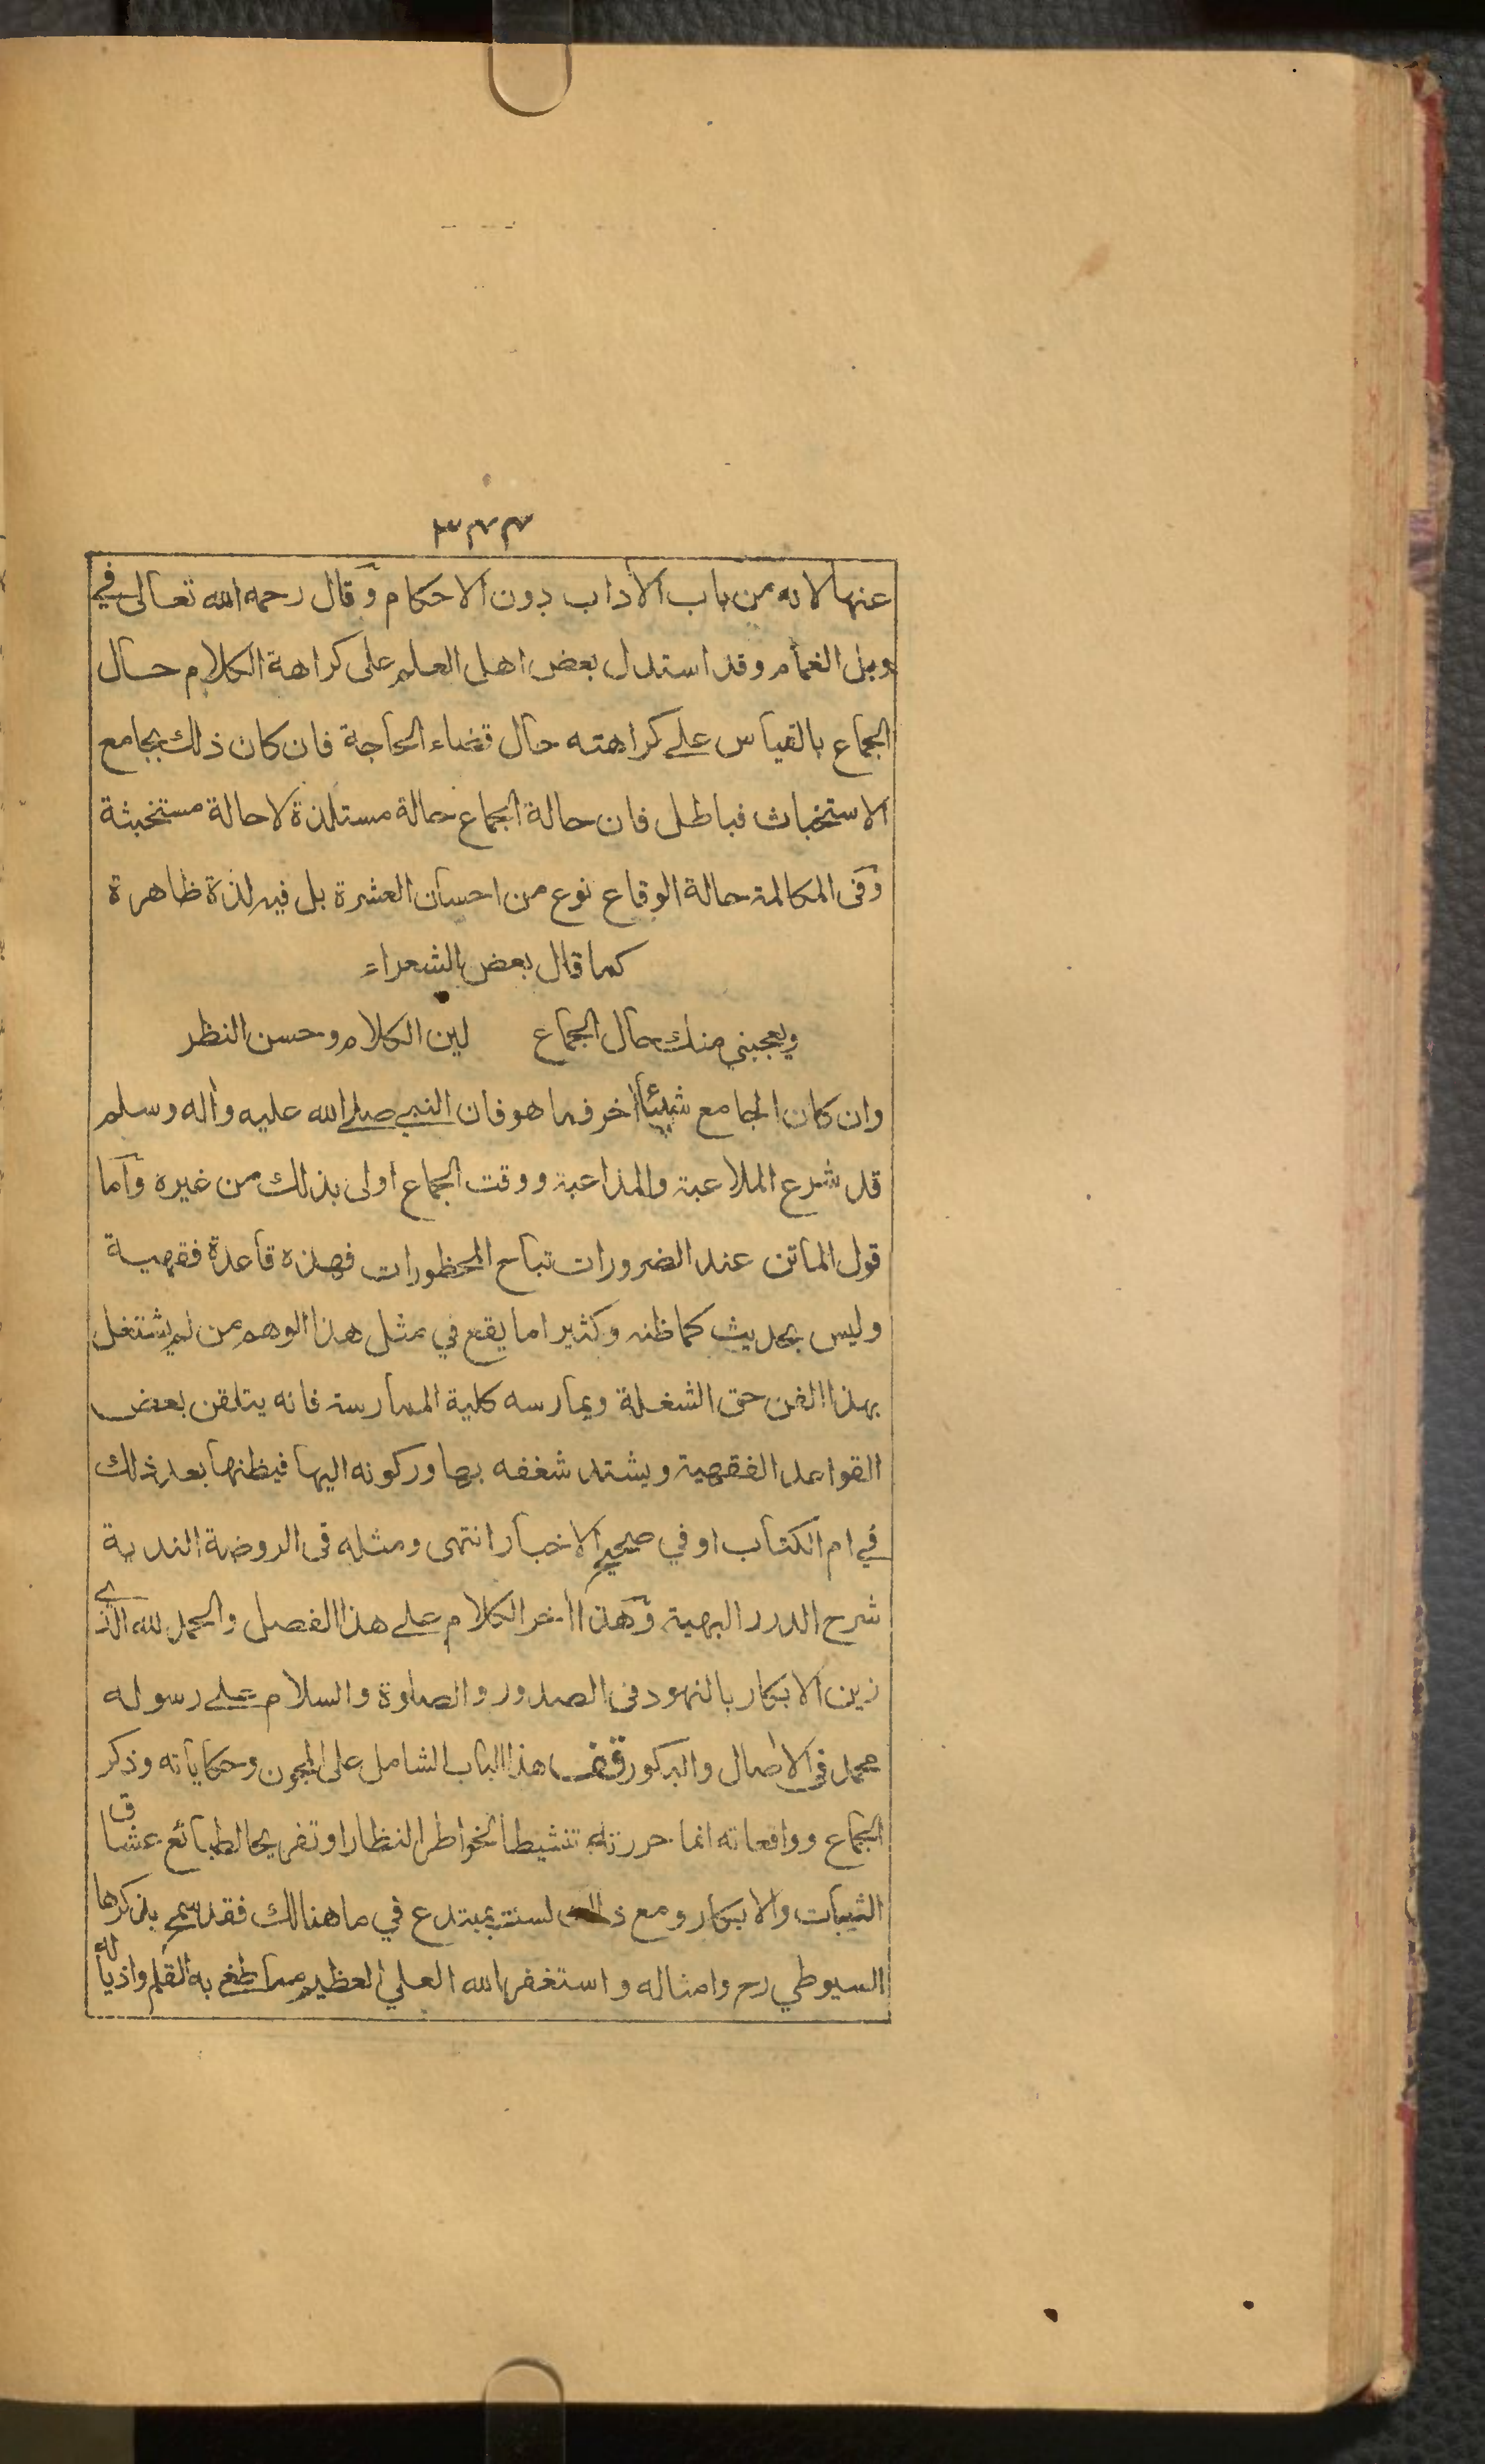 ٣٤٣
عنها لانه من باب الأداب دون الاحكام وقال رحمه الله تعالى في
وبل الغمام وقد استدل بعض اهل العلم على كراهة الكلام حال
الجماع بالقياس على كراهته حال قضاء الحاجة فان كان ذلك بجامع
الاستخباث فباطل فان حالة الجماع حالة مستلذة لا حالة مستخبثة
وفى المكالمة حالة الوقاع نوع من احسان العشرة بل فيه لذة ظاهرة
كما قال بعض الشعراء
ويعجبني منك حال الجماع لين الكلام وحسن النظر
وان كان الجامع شيئا أخر فما هو فان النبي صلى الله عليه وأله وسلم
قد شرع الملاعبة والمداعبة ووقت الجماع اولى بذلك من غيره وأما
قول الماتن عند الضرورات تباح المحظورات فهذه قاعدة فقهية
وليس بحديث كما ظنه وكثيرا ما يقع في مثل هذا الوهم من لم يشتغل
بهذا الفن حق الشغلة ويمارسه كلية الممارسة فانه يتلقن بعض
القواعد الفقهية ويشتد شغفه بها وركونه اليها فيظنها بعد ذلك
في ام الكتاب او في صحيح الاخبار انتهى ومثله فى الروضة الندية
شرح الدرر البهية وهذا أخر الكلام على هذا الفصل والحمد لله الذي
زين الابكار بالنهود فى الصدور والصلوة والسلام على رسوله
محمد فى الأصال والبكور قف هذا الباب الشامل على المجون وحكاياته وذكر
الجماع وواقعاته انما حررته تنشيطا لخواطر النظار او تفريحا لطبائع عشاق
الثيبات والابكار ومع ذلك لست بمبتدع في ما هنالك فقد سمح بذكرها
السيوطي رح وامثاله واستغفر الله العلي العظيم مما طغى به القلم واذيا له